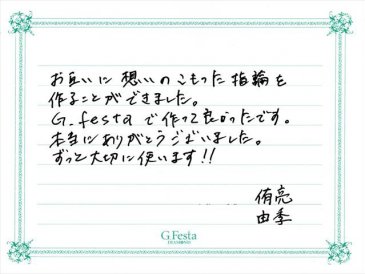 お互いに想いのこもった指輪を
作ることができました。
G.festaで作って良かったです。
本当にありがとうございました。
ずっと大切に使います!!
侑亮
由季
G.Festa
DIAMOND